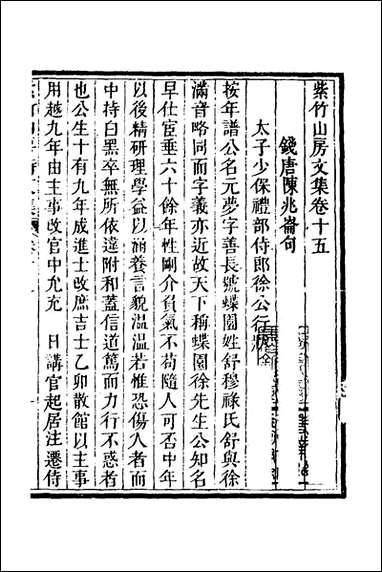 紫竹山房文集卷十五
錢唐陳兆崙句
太子少保禮部侍郎徐公行狀
按年譜公名元夢字善長號蝶園姓舒穆祿氏舒與徐
滿音略同而字義亦近故天下稱蝶園徐先生公知名
早仕宦垂六十餘年性剛介負氣不苟隨人可否中年
以後精研理學益以涵養言貌溫溫若惟恐傷人者而
中持白黑卒無所依違附和蓋信道篤而力行不惑者
也公生十有九年成進士改庶吉士乙卯散館以主事
用越九年由主事改官中允充 日講官起居注遷侍